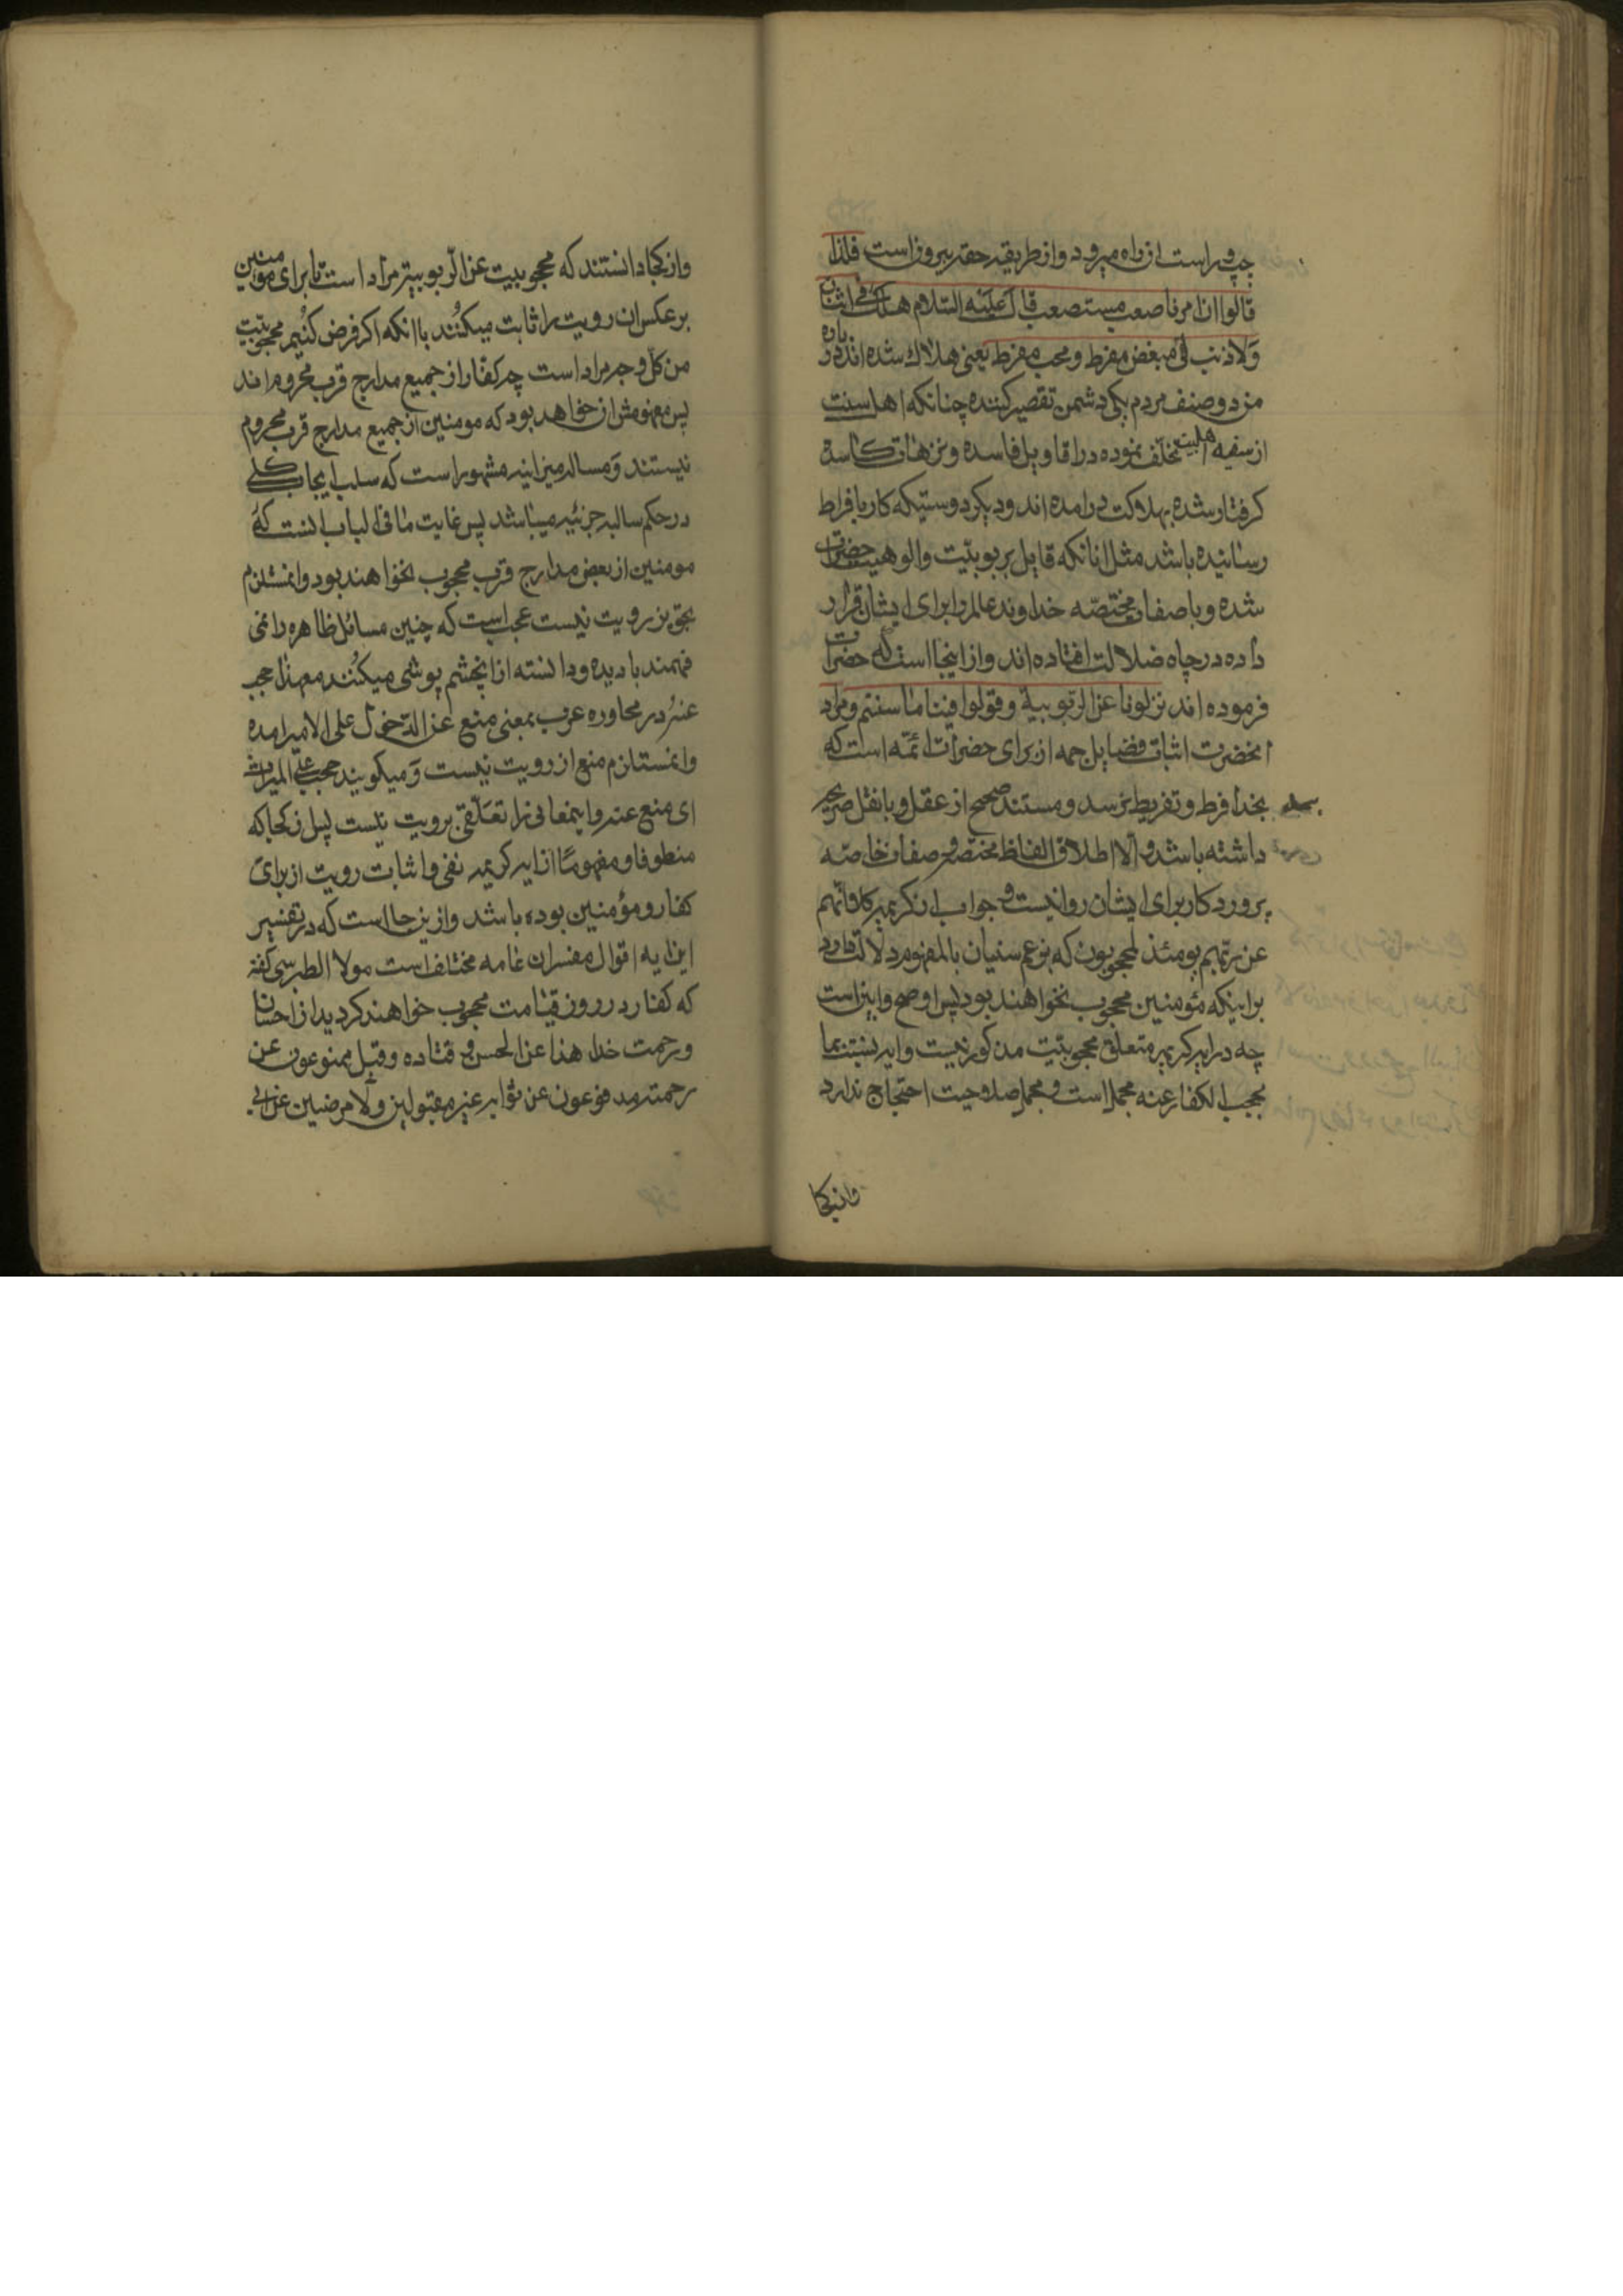 چپ و راست ازان راه میرود و از طریقه حقه بیرون است فلذا
قالوا ان امرنا صعب مستصعب قال علیه السلام هلک فی اثنان
ولا ذنب لی مبغض مفرط و محب مفرط یعنی هلاک شده اند در باره
من دو صنف مردم یکی دشمن تقصیر کننده چنانکه اهل سنت
از سفینه اهلبیت تخلف نموده در اقاویل فاسده و نزهات کاسده
کرفتار شده بهلاکت درامده اند و دیکر دوستیکه کار بافراط
رسانیده باشد مثل انانکه قایل بربوبیت والوهیت حضرات
شده و با صفات مختصه خداوند عالم را برای ایشان قرار
داده در چاه ضلالت افتاده اند و از اینجا است که حضرات
فرموده اند نزلونا عن الربوبیة و قولوا فینا ما شئتم و مراد
انحضرت اثبات فضایل جمه از برای حضرات ائمه است که
بحد افرط و تفریط نرسد و مستند صحیح از عقل و یا نقل صریح
داشته باشد و الا اطلاق الفاظ مختصه و صفات خاصه
پروردکار برای ایشان روا نیست و جواب ان کریمه کلا انهم
عن ربهم یومئذ لمحجوبون که بزعم سنیان بالمفهوم دلالت دارد
بر اینکه مؤمنین محجوب نخواهند بود پس اوضح و ابین است
چه در ایه کریمه متعلق محجوبیت مذکور نیست و ایه نسبت بما
یحجب الکفار عنه مجمل است و مجمل صلاحیت احتجاج ندارد
وازکجا
وازکجا دانستند که محجوبیت عن الربوبیته مراد است تا برای مومنین
برعکس ان رویت را ثابت میکنند با انکه اکر فرض کنیم محجوبیت
من کل وجه مراد است چه کفار از جمیع مدارج قرب محروم اند
پس مفهومش ان خواهد بود که مومنین از جمیع مدارج قرب محروم
نیستند و مساله میزانیه مشهور است که سلب ایجاب کلی
در حکم سالبه جزئیه میباشد پس غایت ما فی الباب انست که
مومنین از بعض مدارج قرب محجوب نخواهند بود و انمستلزم
تجویز رویت نیست عجب است که چنین مسائل ظاهره را نمی
فهمند یا دیده و دانسته از ان چشم پوشی میکنند معهذا حجب
عنه در محاوره عرب بمعنی منع عن الدخول علی الامیر امده
وانمستلزم منع از رویت نیست و میکویند حجب علی المیراث
ای منع عنه و اینمعانی را تعلقی برویت نیست پس از کجا که
منطوقا و مفهوما از ایه کریمه نفی و اثبات رویت از برای
کفار و مؤمنین بوده باشد و ازینجا است که در تفسیر
این ایه اقوال مفسران عامه مختلف است مولا الطبرسی کفته
که کفار در روز قیامت محجوب خواهند کردید از احسان
و رحمت خدا هذا عن الحسن و قتاده و قیل ممنوعون عن
رحمته مدفوعون عن ثوابه غیر مقبولین ولا مرضیین عن ابی